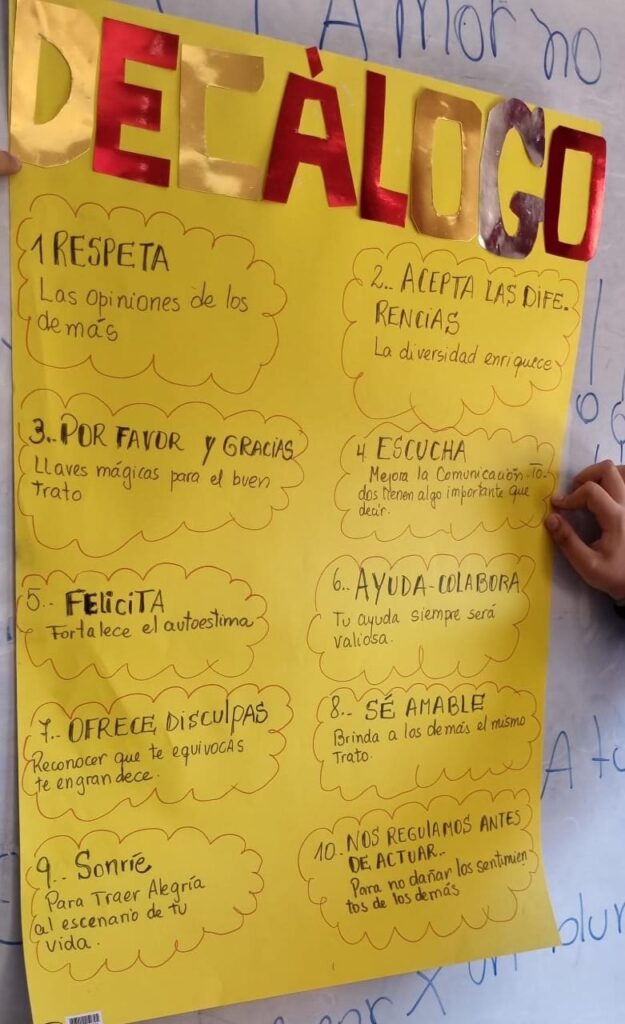 Amor no
DECÀLOGO
1 RESPETA
Las opiniones de los
demás
2.. ACEPTA LAS DIFE.
RENCIAS
La diversidad enriquece
3.. POR FAVOR Y GRACIAS
Llaves mágicas para el buen
Trato
4. ESCUCHA
Mejora la Comunicación To-
dos tienen algo importante que
decir.
5.. FELiciTA
Fortalece el autoestima
6.. AYUDA-COLABORA
Tu ayuda siempre será
valiosa.
7.. OFRECE DiScuLPAS
Reconocer que te equivocas
te engrandece.
8.. SÉ AMABLE
Brinda a los demás el mismo
Trato.
9.. Sonríe
Para Traer Alegría
al escenario de tu
vida.
10. NOS REGULAMOS ANTES
DE ACTUAR..
Para no dañar los sentimien
tos de los demás